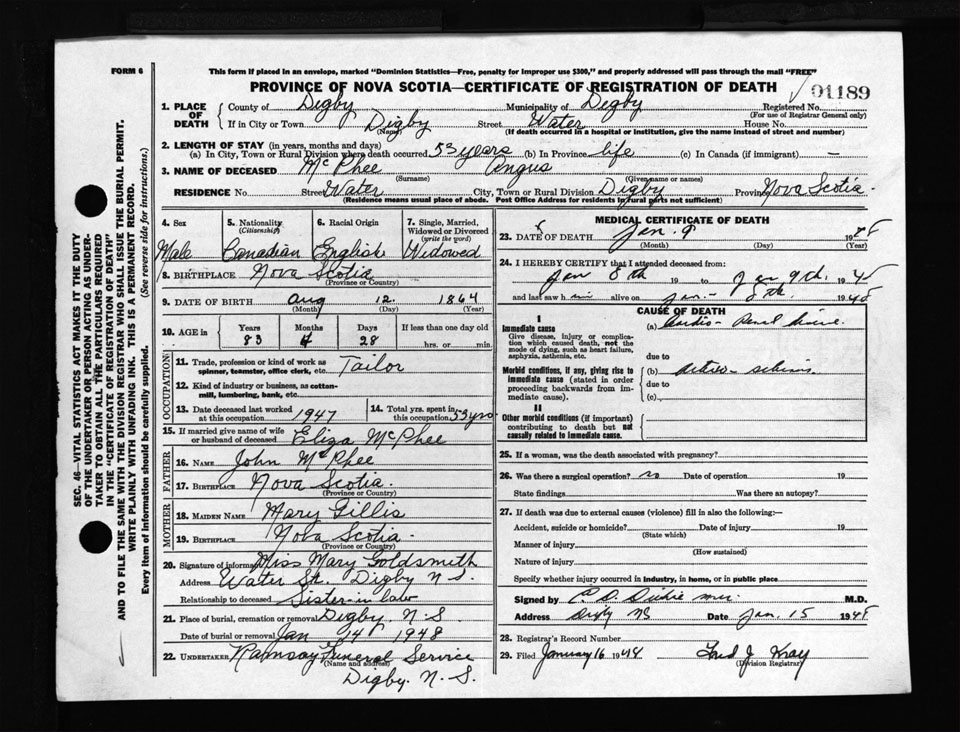 FORM 6
This form if placed in an envelope, marked "Dominion Statistics—Free, penalty for improper use $300," and properly addressed will pass through the mail "FREE"
PROVINCE OF NOVA SCOTIA—CERTIFICATE OF REGISTRATION OF DEATH
01189
1. PLACE OF DEATH
County of Digby Municipality of Digby Registered No.
(For use of Registrar General only)
If in City or Town Digby Street Water House No.
(Name) (If death occurred in a hospital or institution, give the name instead of street and number)
2. LENGTH OF STAY (in years, months and days)
(a) In City, Town or Rural Division where death occurred 53 years (b) In Province life (c) In Canada (if immigrant) —
3. NAME OF DECEASED McPhee Angus
(Surname) (Given name or names)
RESIDENCE No. Street Water City, Town or Rural Division Digby Province Nova Scotia.
(Residence means usual place of abode. Post Office Address for residents in rural parts not sufficient)
4. Sex 5. Nationality (Citizenship) 6. Racial Origin 7. Single, Married, Widowed or Divorced (write the word)
Male Canadian English Widowed
8. BIRTHPLACE Nova Scotia
(Province or Country)
9. DATE OF BIRTH Aug 12. 1864
(Month) (Day) (Year)
10. AGE in Years Months Days If less than one day old
83 4 28 hrs. or min.
OCCUPATION
11. Trade, profession or kind of work as spinner, teamster, office clerk, etc. Tailor
12. Kind of industry or business, as cotton-mill, lumbering, bank, etc.
13. Date deceased last worked at this occupation 1947 14. Total yrs. spent in this occupation 53 yrs
15. If married give name of wife or husband of deceased Eliza McPhee
FATHER
16. NAME John McPhee
17. BIRTHPLACE Nova Scotia.
(Province or Country)
MOTHER
18. MAIDEN NAME Mary Gillis
19. BIRTHPLACE Nova Scotia.
(Province or Country)
20. Signature of informant Miss Mary Goldsmith
Address Water St. Digby N.S.
Relationship to deceased Sister-in law
21. Place of burial, cremation or removal Digby. N.S
Date of burial or removal Jan 14 1948
22. UNDERTAKER Ramsay Funeral Service
(Name and address)
Digby. N.S.
MEDICAL CERTIFICATE OF DEATH
23. DATE OF DEATH Jan. 9 1948
(Month) (Day) (Year)
24. I HEREBY CERTIFY that I attended deceased from:
Jan 8th 19 to Jan 9th. 1948
and last saw him alive on Jan.- 8th. 1948
CAUSE OF DEATH
I
Immediate cause (a) Cardio-Renal
Give disease, injury or complication which caused death, not the mode of dying, such as heart failure, asphyxia, asthenia, etc.
due to
Morbid conditions, if any, giving rise to immediate cause (stated in order proceeding backwards from immediate cause). (b) Arterio-
due to
(c)
II
Other morbid conditions (if important) contributing to death but not causally related to immediate cause.
25. If a woman, was the death associated with pregnancy?
26. Was there a surgical operation? no Date of operation 19
State findings Was there an autopsy?
27. If death was due to external causes (violence) fill in also the following:—
Accident, suicide or homicide? Date of injury 19
(State which)
Manner of injury
(How sustained)
Nature of injury
Specify whether injury occurred in industry, in home, or in public place
Signed by M.D.
Address Digby NS Date Jan. 15 1948
28. Registrar's Record Number
29. Filed January 16 1948 Fred J
(Division Registrar)
SEC. 46—VITAL STATISTICS ACT MAKES IT THE DUTY
OF THE UNDERTAKER OR PERSON ACTING AS UNDER-
TAKER TO OBTAIN ALL THE PARTICULARS REQUIRED
IN THE "CERTIFICATE OF REGISTRATION OF DEATH"
AND TO FILE THE SAME WITH THE DIVISION REGISTRAR WHO SHALL ISSUE THE BURIAL PERMIT.
WRITE PLAINLY WITH UNFADING INK. THIS IS A PERMANENT RECORD.
Every item of information should be carefully supplied. (See reverse side for instructions.)